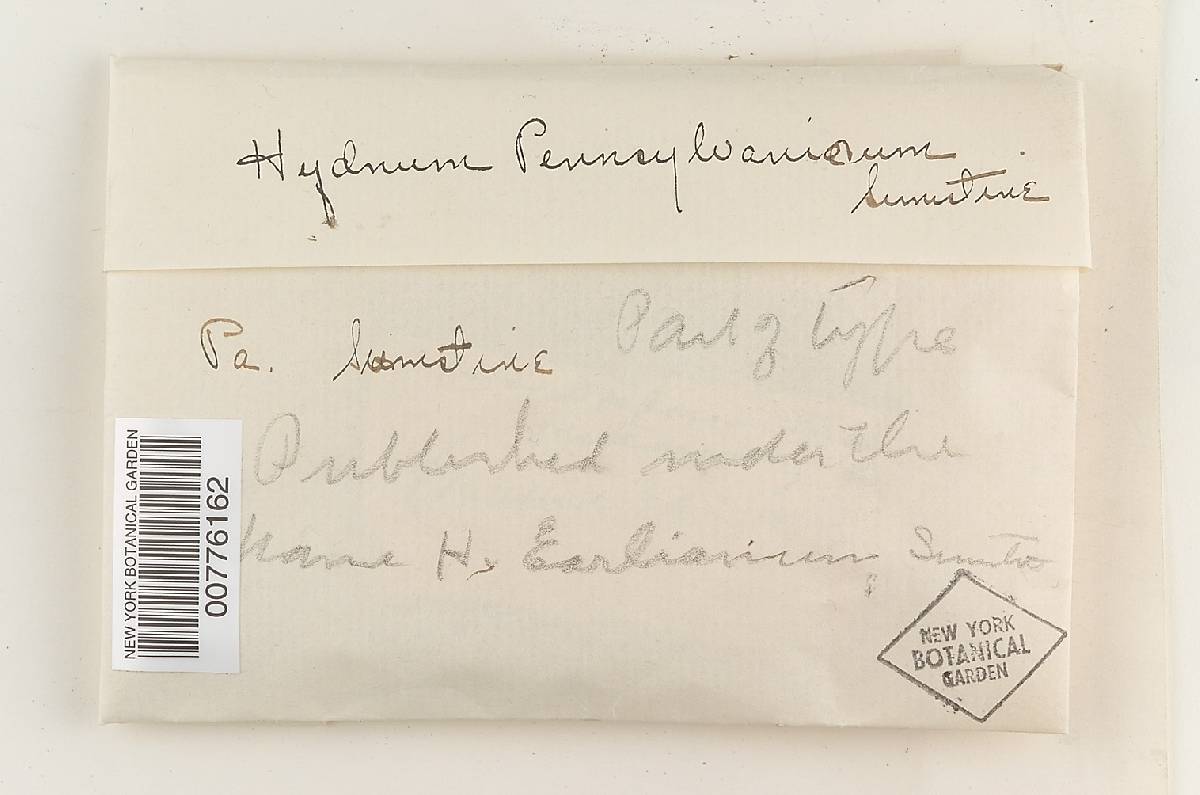 Hydnum Pennsylvanicum
Sumstine
Pa. Sumstine Part of type
Published under the
name H. Earlianum Sumst.
NEW YORK BOTANICAL GARDEN
00776162
NEW YORK
BOTANICAL
GARDEN